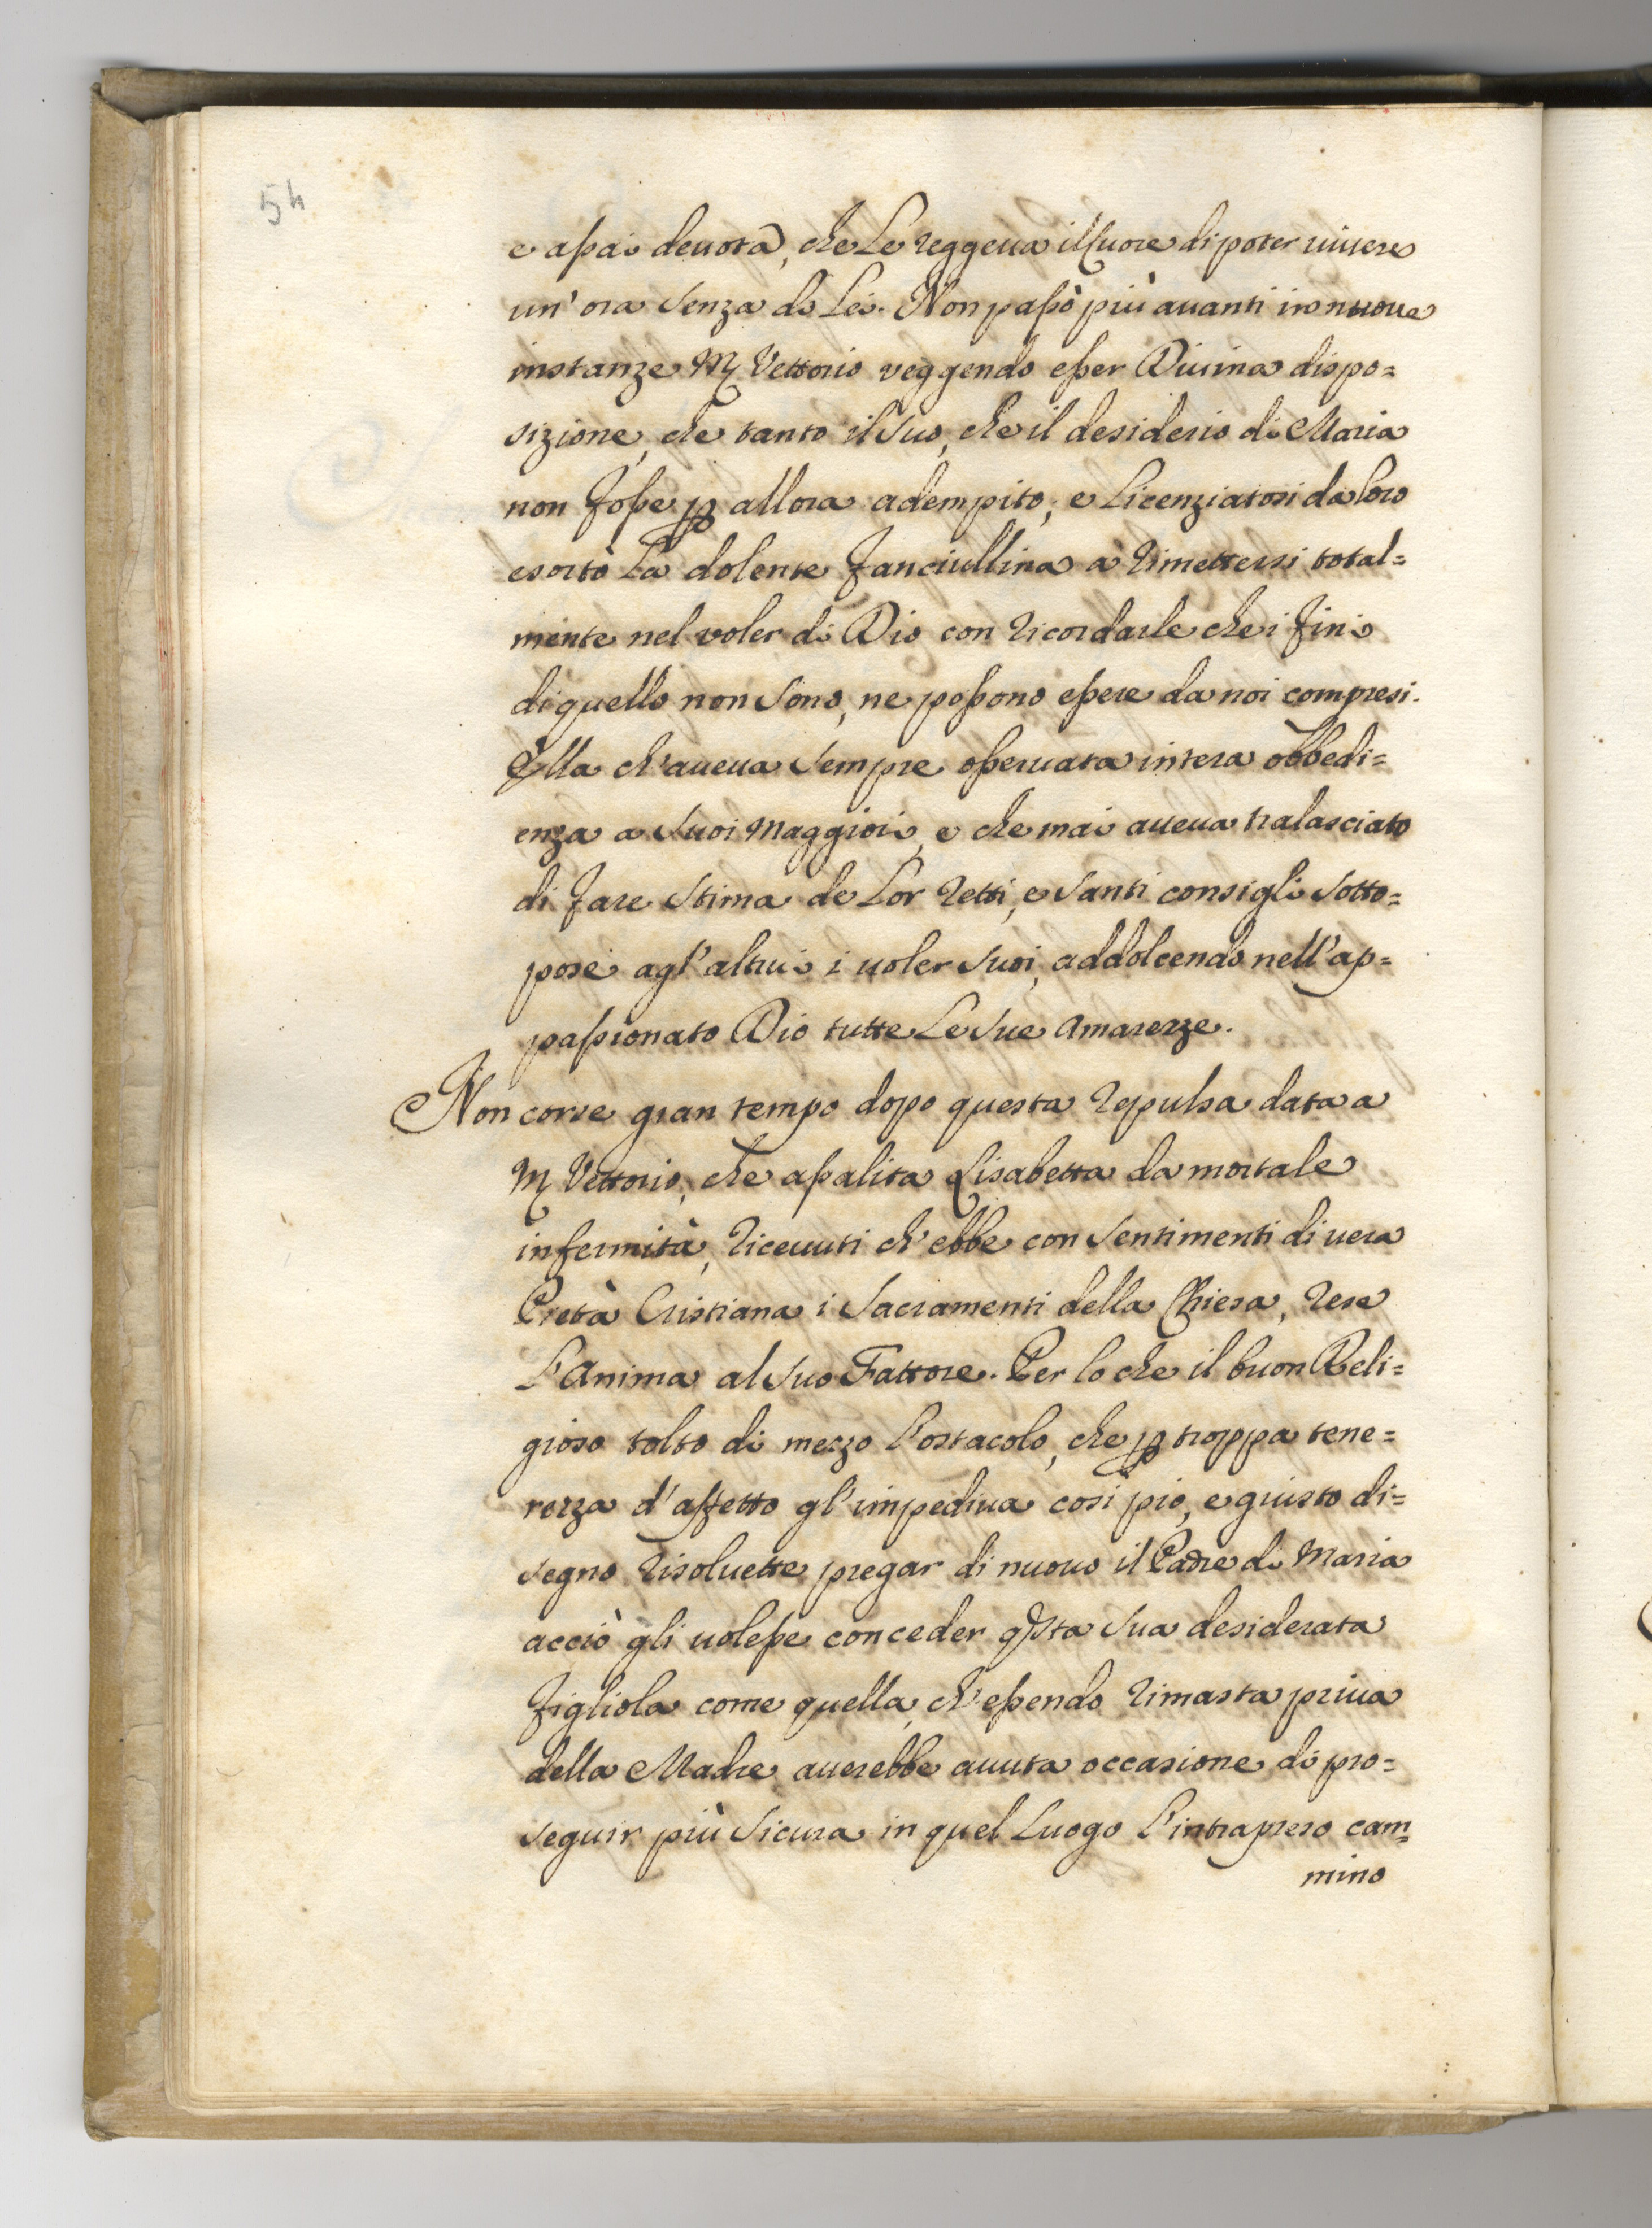 54
e assai deuota, che Le reggeua il Cuore di poter uiuere
un' ora senza di Lei. Non passò più auanti in nuoue
instanze M Vettorio veggendo esser Diuina dispo=
sizione, che tanto il suo, che il desiderio di Maria
non fosse p allora adempito, e Licenziatosi da loro
esortò La dolente fanciullina a rimettersi total=
mente nel voler di Dio con ricordarle che i fini
di quello non sono, ne possono essere da noi compresi.
Ella ch'aueua sempre osseruata intera obbedi=
enza a suoi Maggiori, e che mai aueua tralasciato
di fare stima de Lor retti, e santi consigli sotto=
pose agl'altrui i uoler suoi, addolcendo nell'ap=
passionato Dio tutte Le sue Amarezze.
Non corse gran tempo dopo questa repulsa data a
M Vettorio, che assalita Lisabetta da mortale
infermità, riceuuti ch'ebbe con sentimenti di uera
Pietà Cristiana i Sacramenti della Chiesa, rese
L'Anima al suo Fattore. Per lo che il buon Reli=
gioso tolto di mezzo l'ostacolo, che p troppa tene=
rezza d'affetto gl'impediua così pio, e giusto di=
segno risoluette pregar di nuouo il Padre di Maria
acciò gli uolesse conceder qsta sua desiderata
figliola come quella, ch'essendo rimasta priua
della Madre auerebbe auuta occasione di pro=
seguir più sicura in quel Luogo L'intrapreso cam=
mino